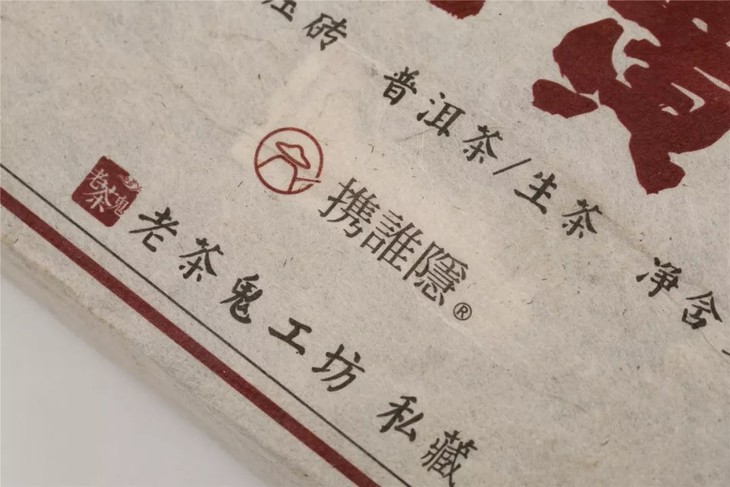 砖
普洱茶/生茶 净含
携誰隱®
老茶鬼
老茶鬼工坊 私藏